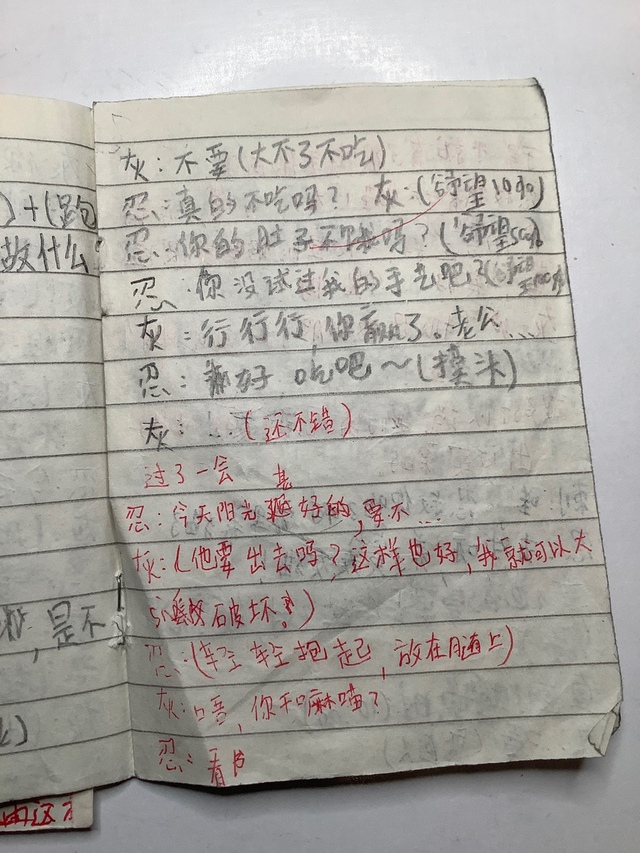 )+(跑
故什么
，是不
灰：不要(大不了不吃)
忍：真的不吃吗？ 灰：(希望10%)
忍：你的肚子不饿吗？(希望50%
忍：你没试过我的手艺吧？(希望
灰：行行行，你赢了。老公……
忍：好 吃吧～(摸头)
灰：……(还不错)
过了一会
忍：今天阳光挺好的，要不…
灰：(他要出去吗？这样也好，我就可以大
破坏！)
忍：(轻轻抱起，放在腿上)
灰：唔，你干嘛喵？
忍：看书